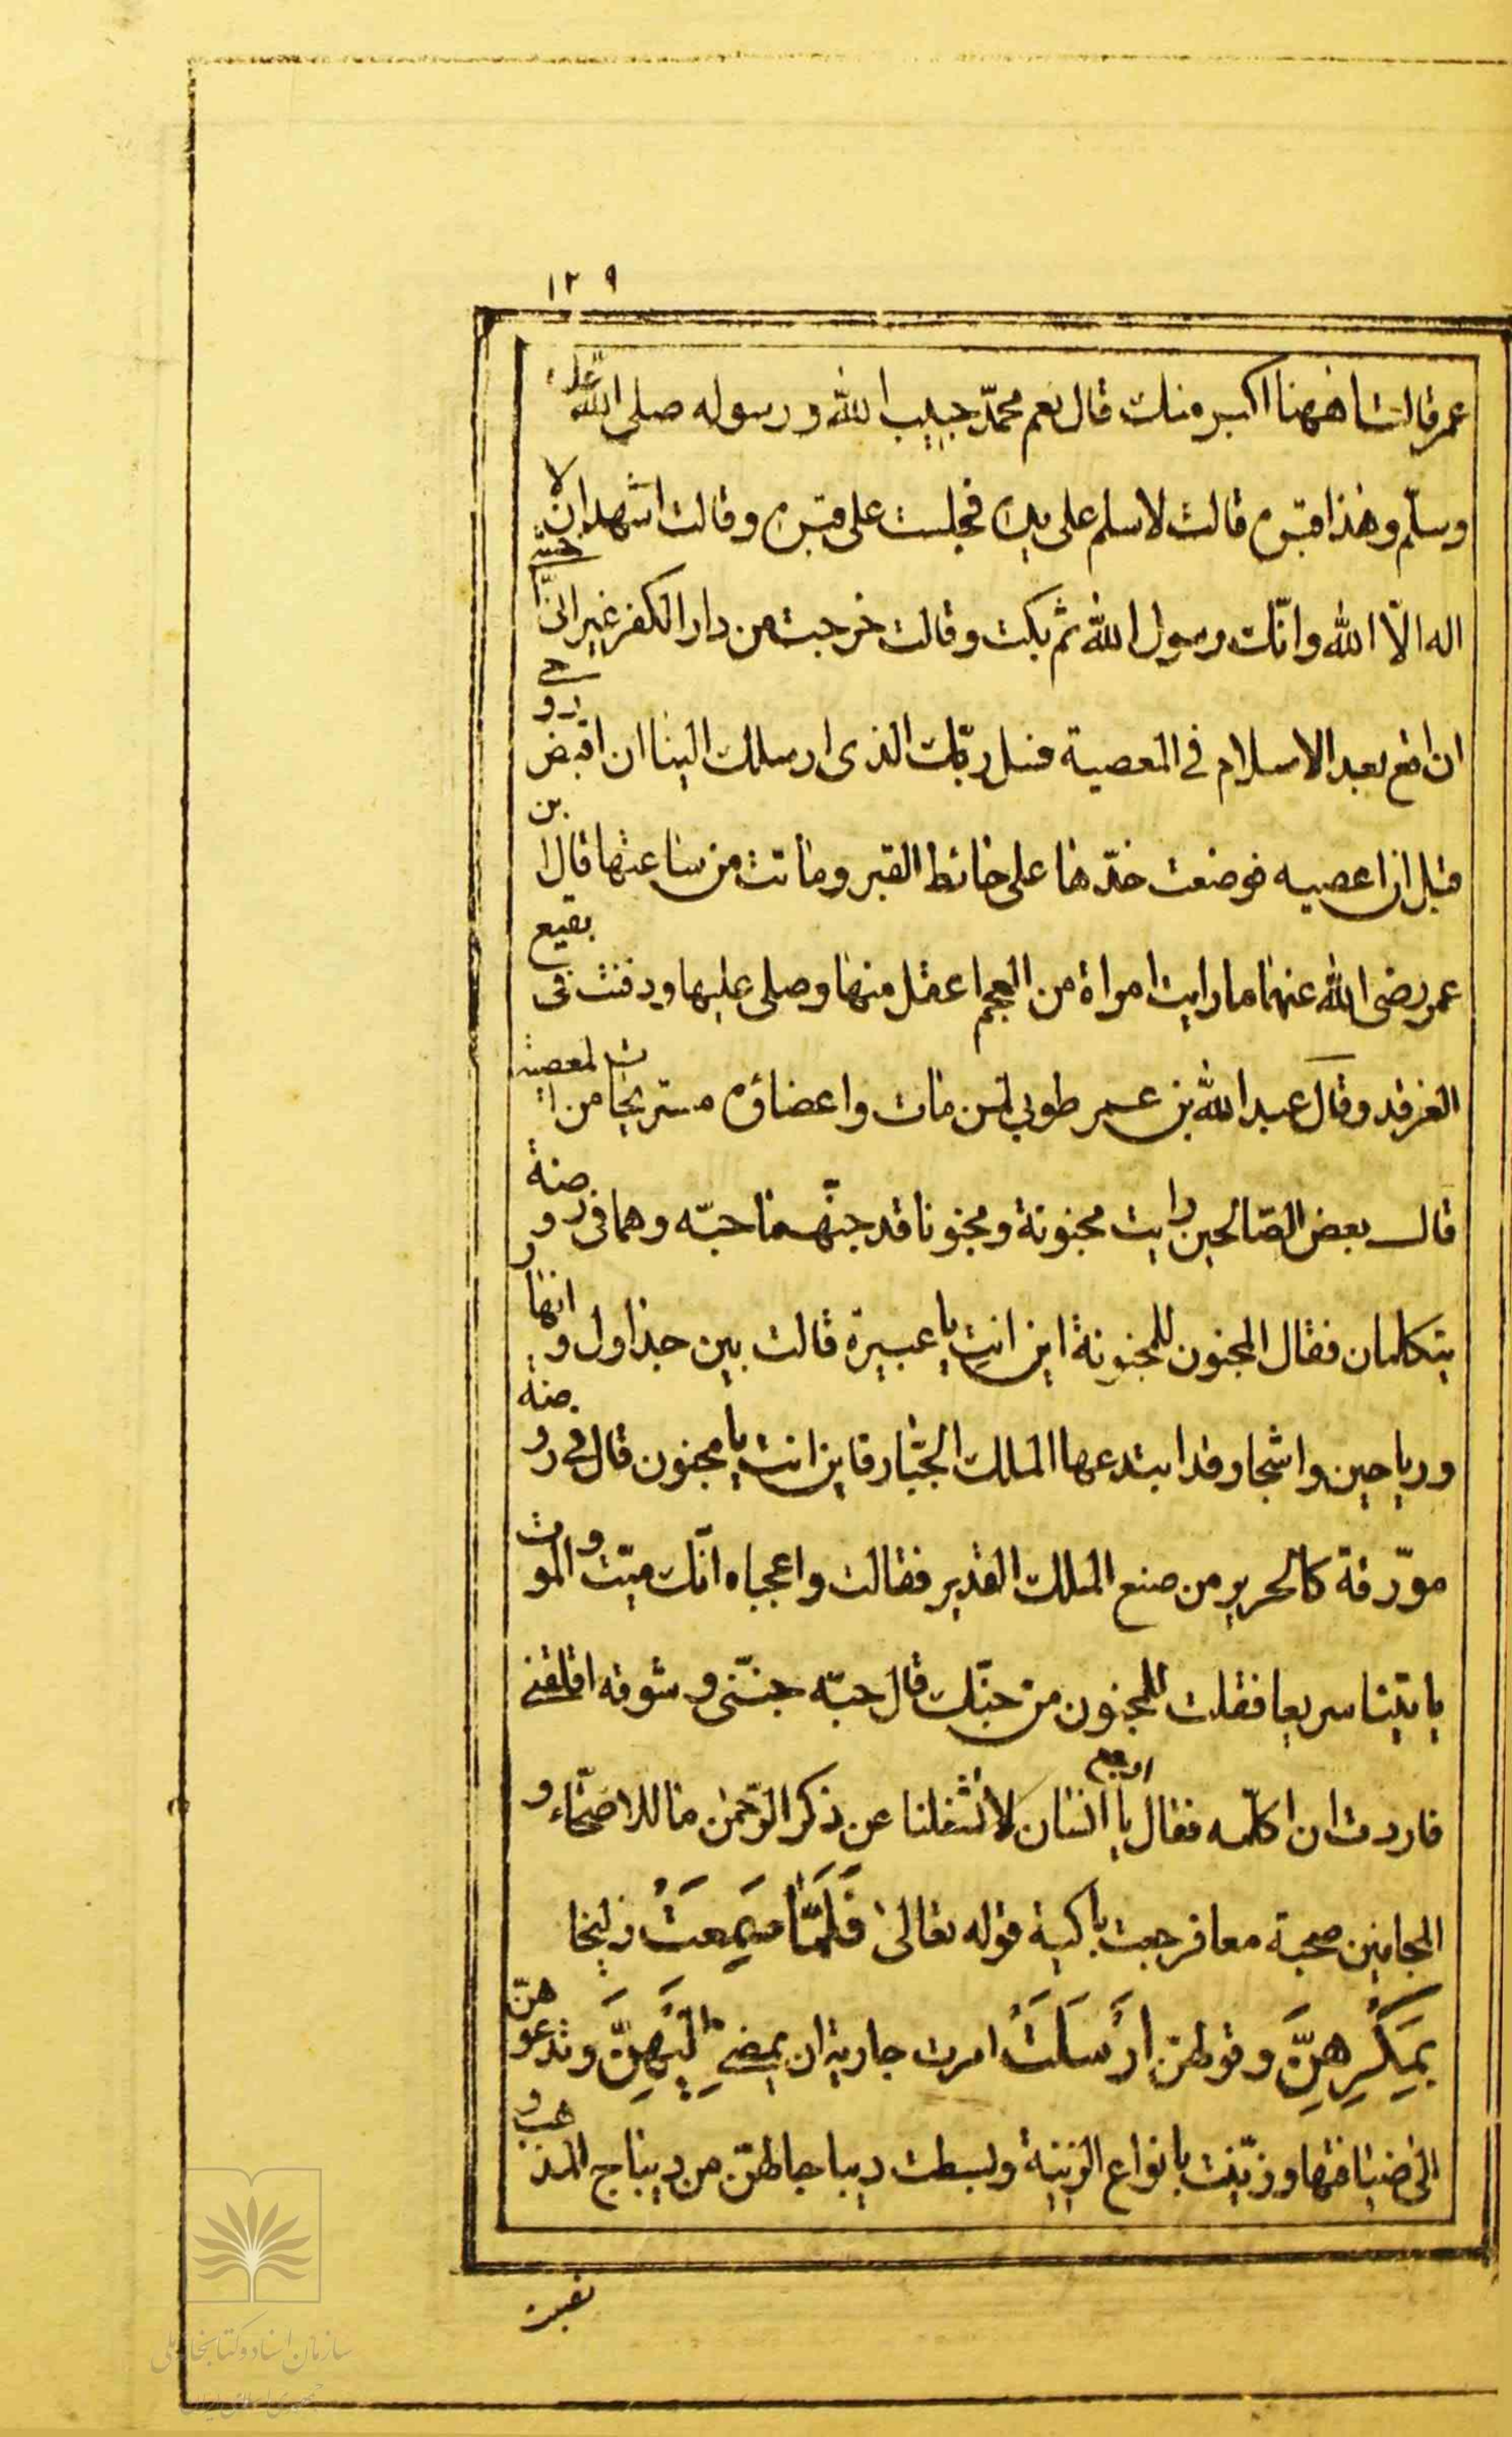 ١٢٩
عمر قالت اههنا اكبر منك قال نعم محمّد حبيب الله و رسوله صلى الله عليه
وسلّم وهذا قبره قالت لاسلم على يده فجلست على قبره وقالت اشهد ان لا
اله الّا الله وانّك رسول الله ثم بكت وقالت خرجت من دار الكفر غير انّى خشيت
ان اقع بعد الاسلام فى المعصية فسل ربّك الذى ارسلك الينا ان اقبض روحى
قبل ان اعصيه فوضعت خدّها على حائط القبر وماتت من ساعتها قال ابن
عمر رضى الله عنهما ما رايت امراة من العجم اعقل منها وصلى عليها ودفنت فى بقيع
الغرقد وقال عبد الله بن عمر طوبى لمن مات واعضاؤه مستريحات من المعصية
قال بعض الصّالحين رايت مجنونة ومجنونا قد جنّهما حبّه وهما فى روضة
يتكلمان فقال المجنون للمجنونة اين انت يا عبيرة قالت بين جداول وانهار
ورياحين واشجار قد ابتدعها الملك الجبّار فاين انت يا مجنون قال فى روضة
مورّقة كالحرير من صنع الملك القدير فقالت واعجباه انّك ميّت والموت
ياتينا سريعا فقلت للمجنون من حبّك قال حبّه جنّنى وشوقه اقلقنى
فاردت ان اكلّمه فقال يا انسان ارجع لا تشغلنا عن ذكر الرّحمن ما للاصحّاء و
المجانين صحبة معا فرجعت باكية قوله تعالى فَلَمَّا سَمِعَتْ زليخا
بِمَكْرِهِنَّ وقولهنّ اَرْسَلَتْ امرت جارية ان يمضى اِلَيْهِنَّ وتدعوهنّ
الى ضيافتها وزيّنت بانواع الزينة وبسطت ديباجا لهنّ من ديباج المذهب و